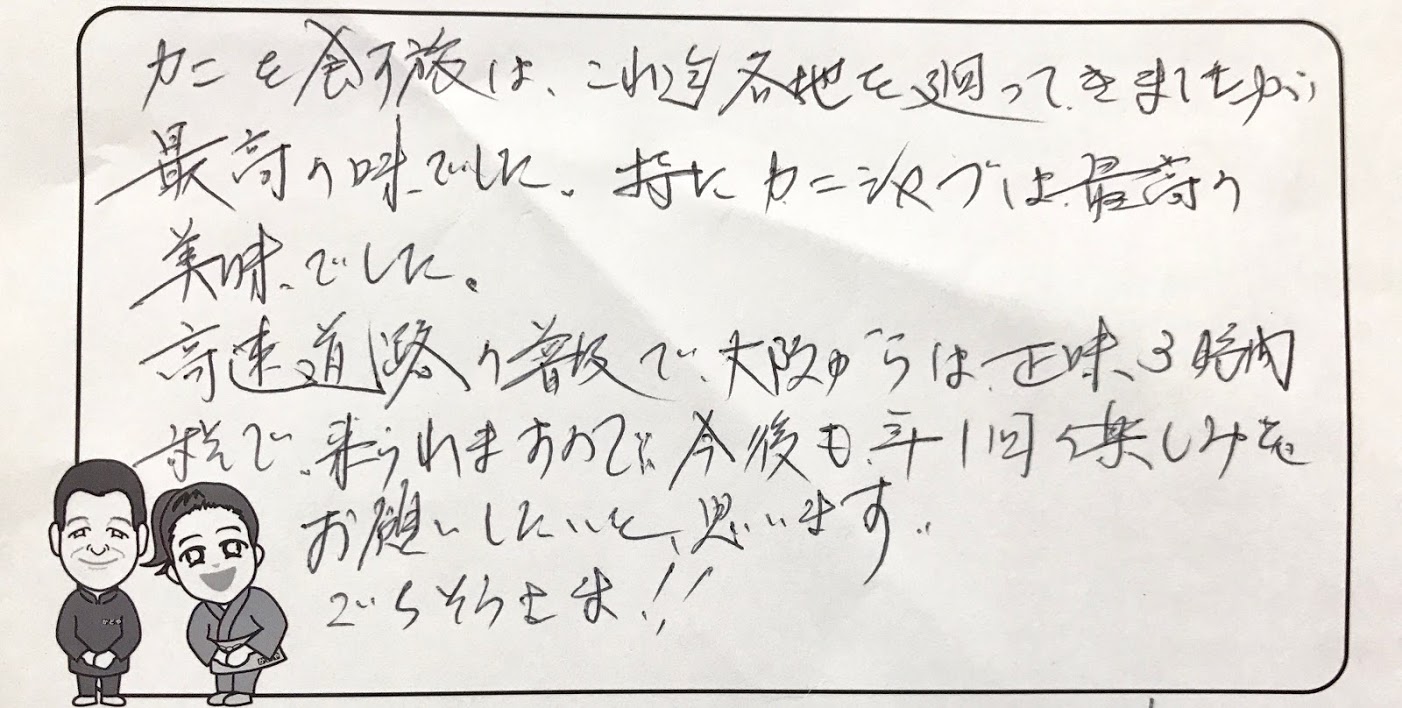 カニを食す旅は、これ迄各地を廻ってきましたが
最高の味でした。特にカニシャブは最高の
美味でした。
高速道路の普及で、大阪からは正味3時間
程で、来られますので、今後も年1回の楽しみを
お願いしたいと思います。
ごちそうさま!!